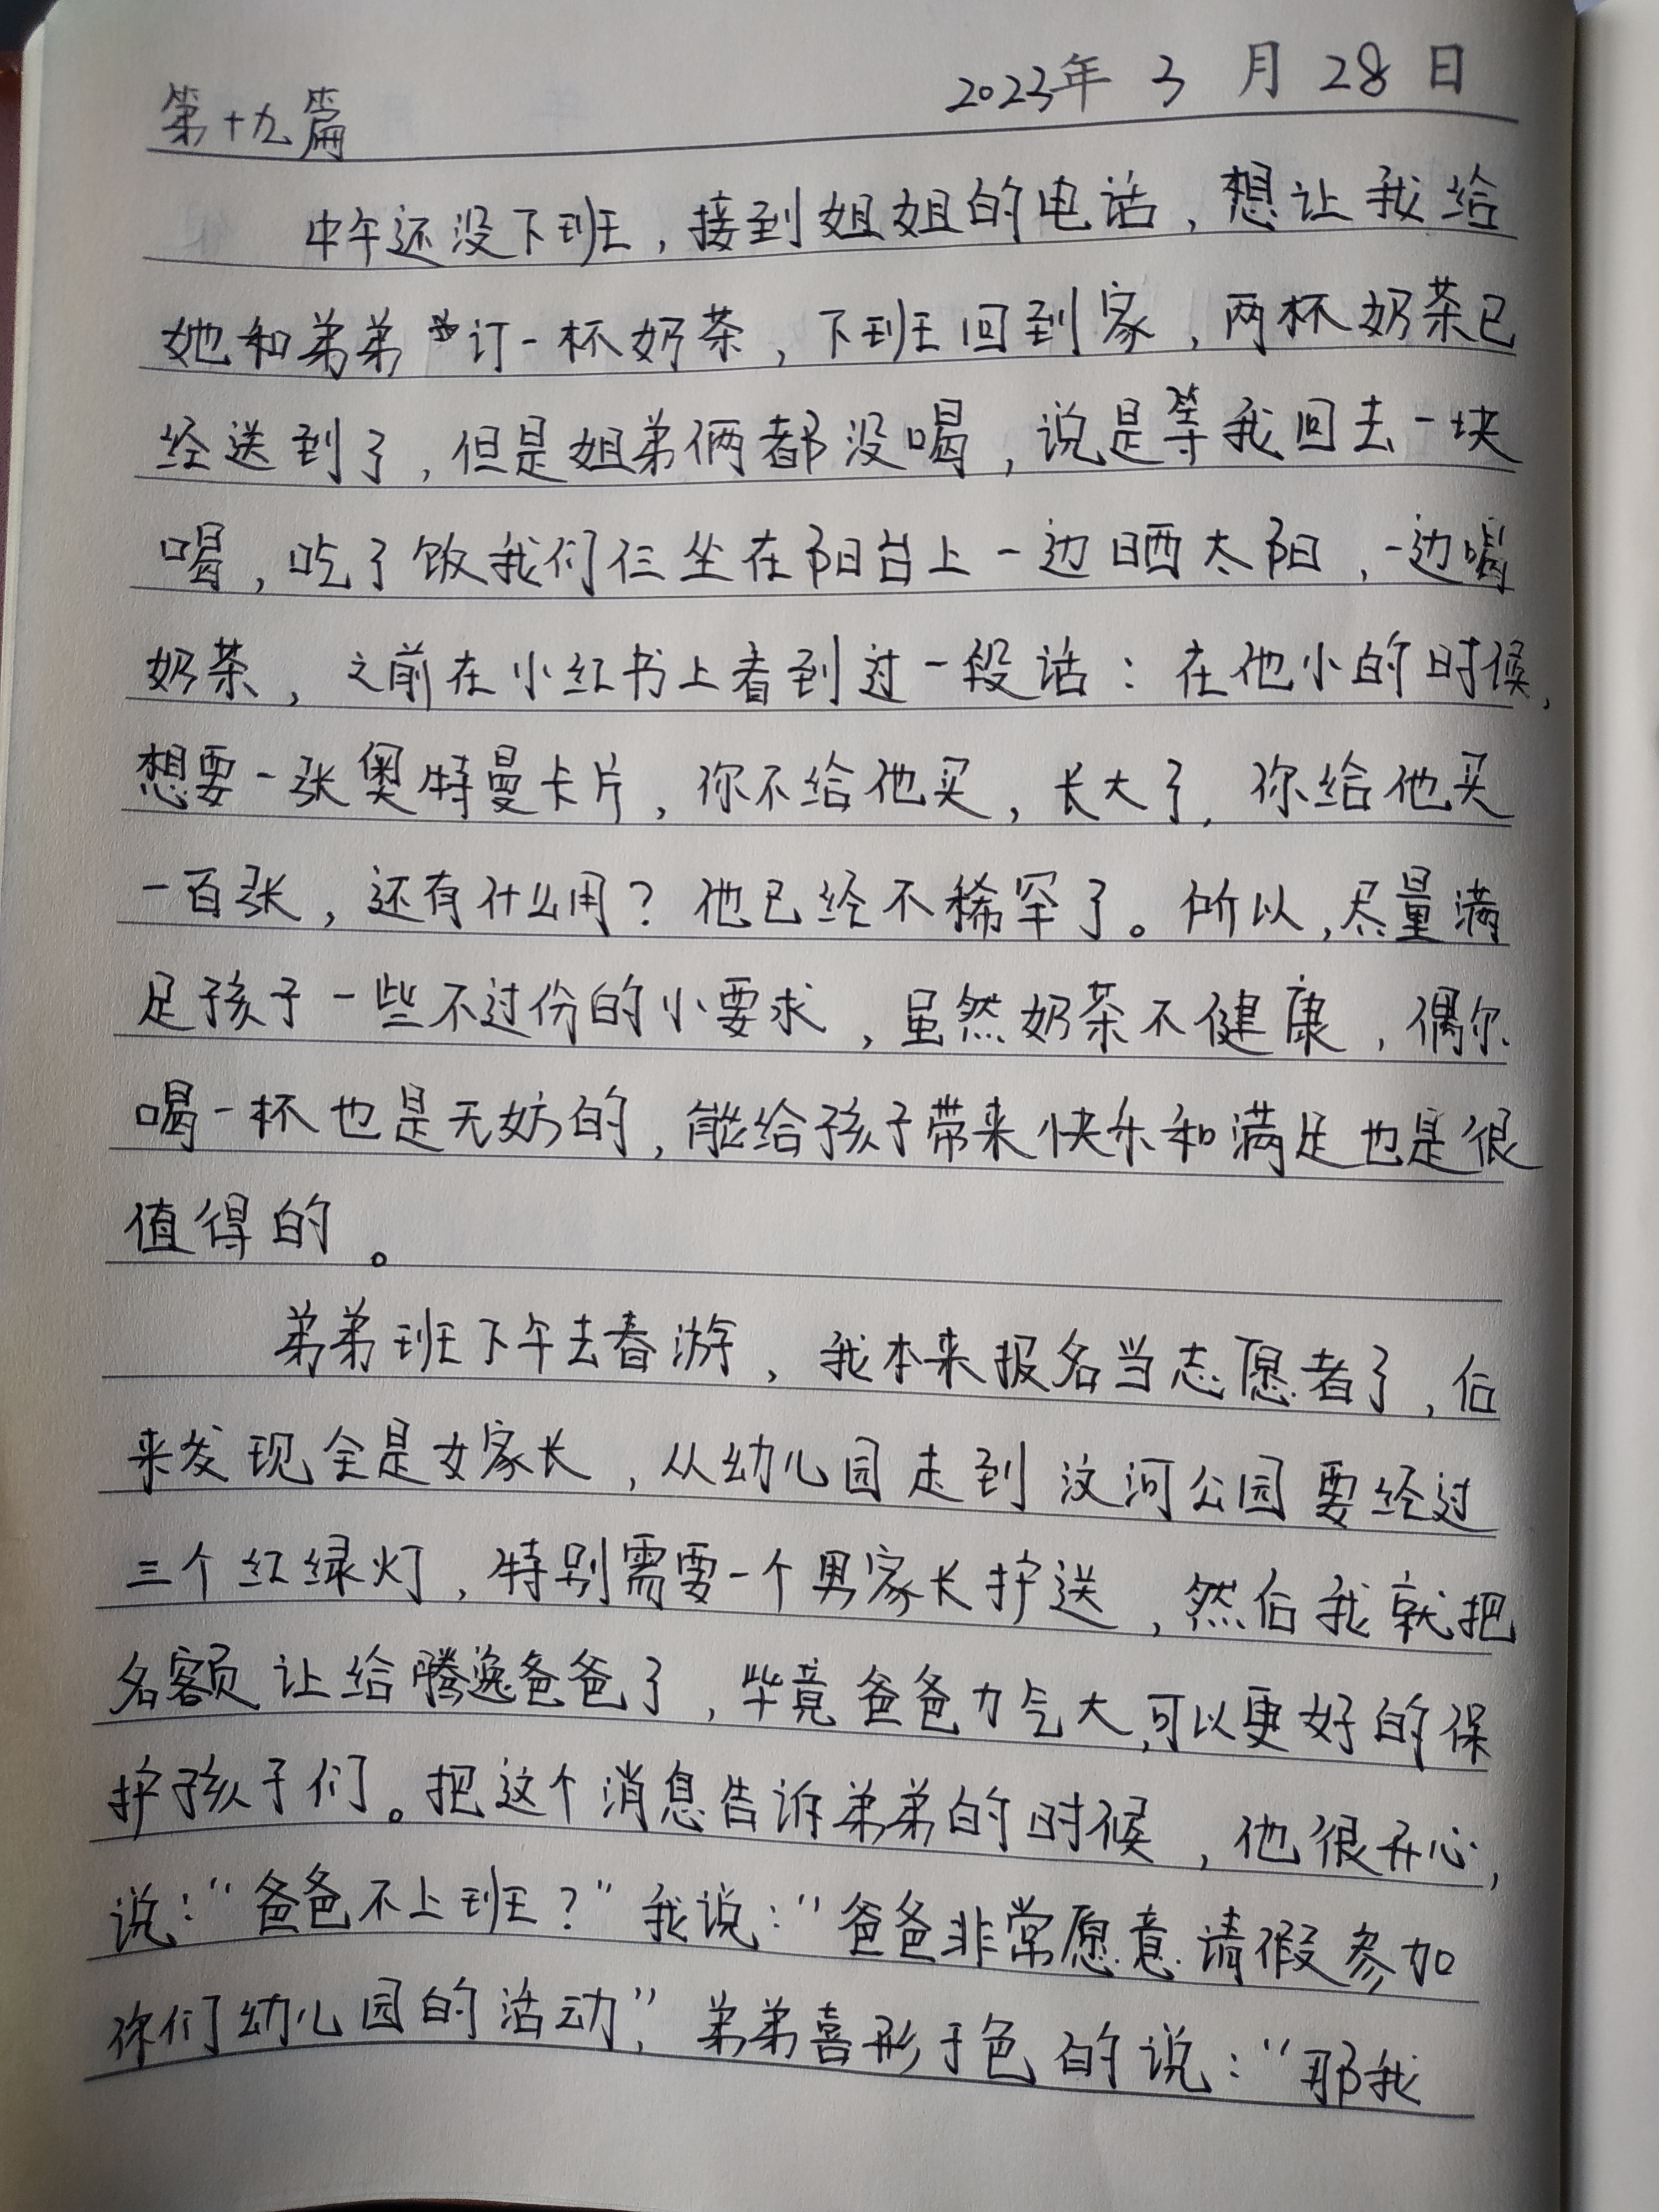 第十九篇 2023年 3 月 28 日
中午还没下班，接到姐姐的电话，想让我给
她和弟弟订一杯奶茶，下班回到家，两杯奶茶已
经送到了，但是姐弟俩都没喝，说是等我回去一块
喝，吃了饭我们仨坐在阳台上一边晒太阳，一边喝
奶茶，之前在小红书上看到过一段话：在他小的时候，
想要一张奥特曼卡片，你不给他买，长大了，你给他买
一百张，还有什么用？他已经不稀罕了。所以，尽量满
足孩子一些不过份的小要求，虽然奶茶不健康，偶尔
喝一杯也是无妨的，能给孩子带来快乐和满足也是很
值得的。
弟弟班下午去春游，我本来报名当志愿者了，后
来发现全是女家长，从幼儿园走到汶河公园要经过
三个红绿灯，特别需要一个男家长护送，然后我就把
名额让给腾逸爸爸了，毕竟爸爸力气大，可以更好的保
护孩子们。把这个消息告诉弟弟的时候，他很开心，
说：“爸爸不上班？”我说：“爸爸非常愿意请假参加
你们幼儿园的活动”，弟弟喜形于色的说：“那我